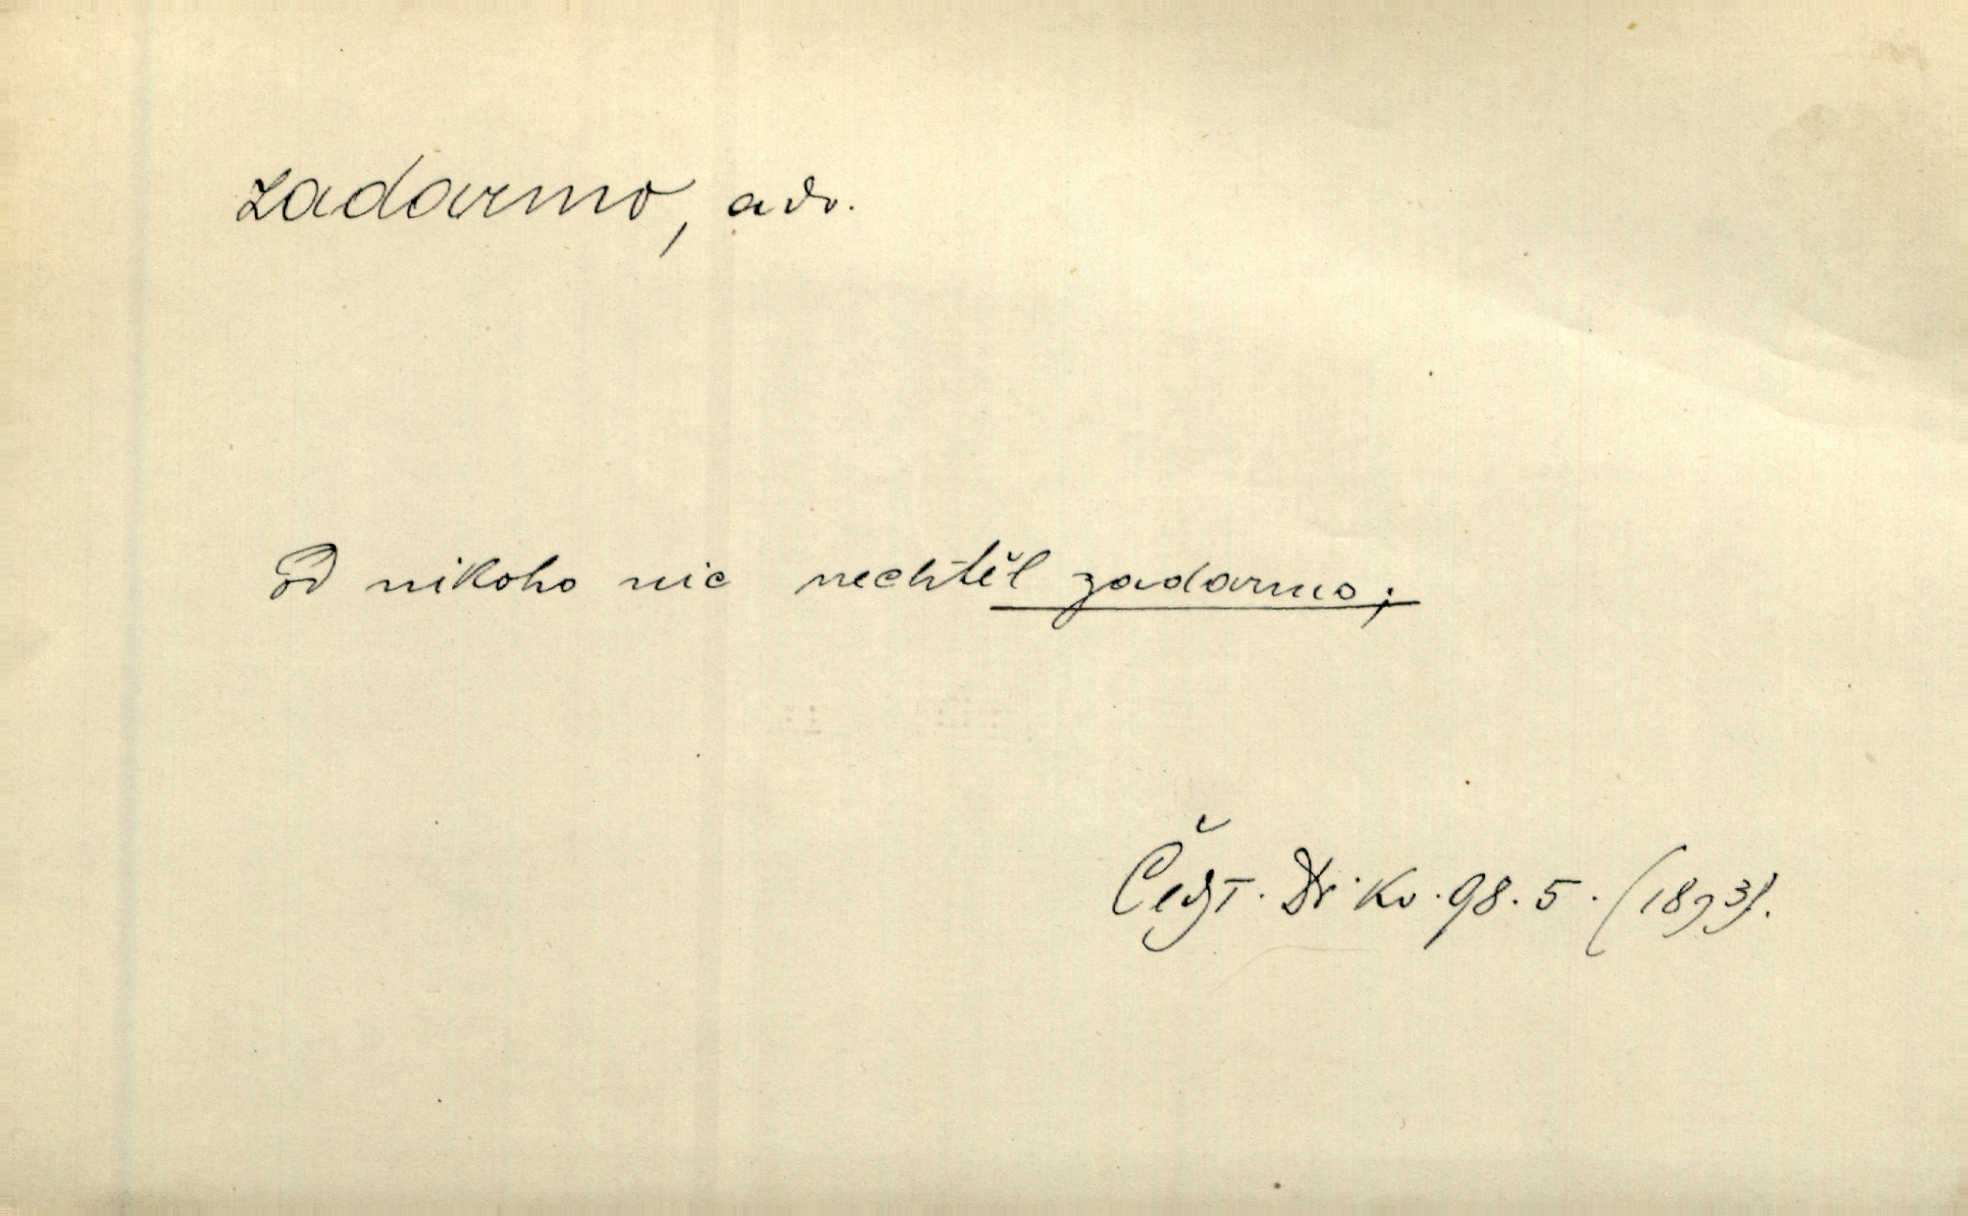 zadarmo, adv.
od nikoho nic nechtěl zadarmo;
Kv. 98. 5. (1893).